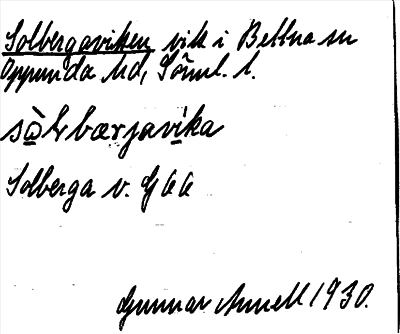 Solbergaviken vik i Bettna sn
Oppunda hd, Söml. l.
sòLbærjavika
Solberga v. G 66
Gunnar Amnell 1930.